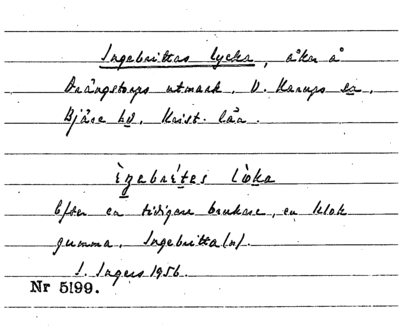 Ingebrittas lycka, åker å
Drängstorps utmark, V. Karups sn,
Bjäre hd, Krist. län.
ìṉebrítes lỳka
Efter en tidigare brukare, en klok
gumma, Ingebritta(n).
S. Ingers 1956.
Nr 5199.